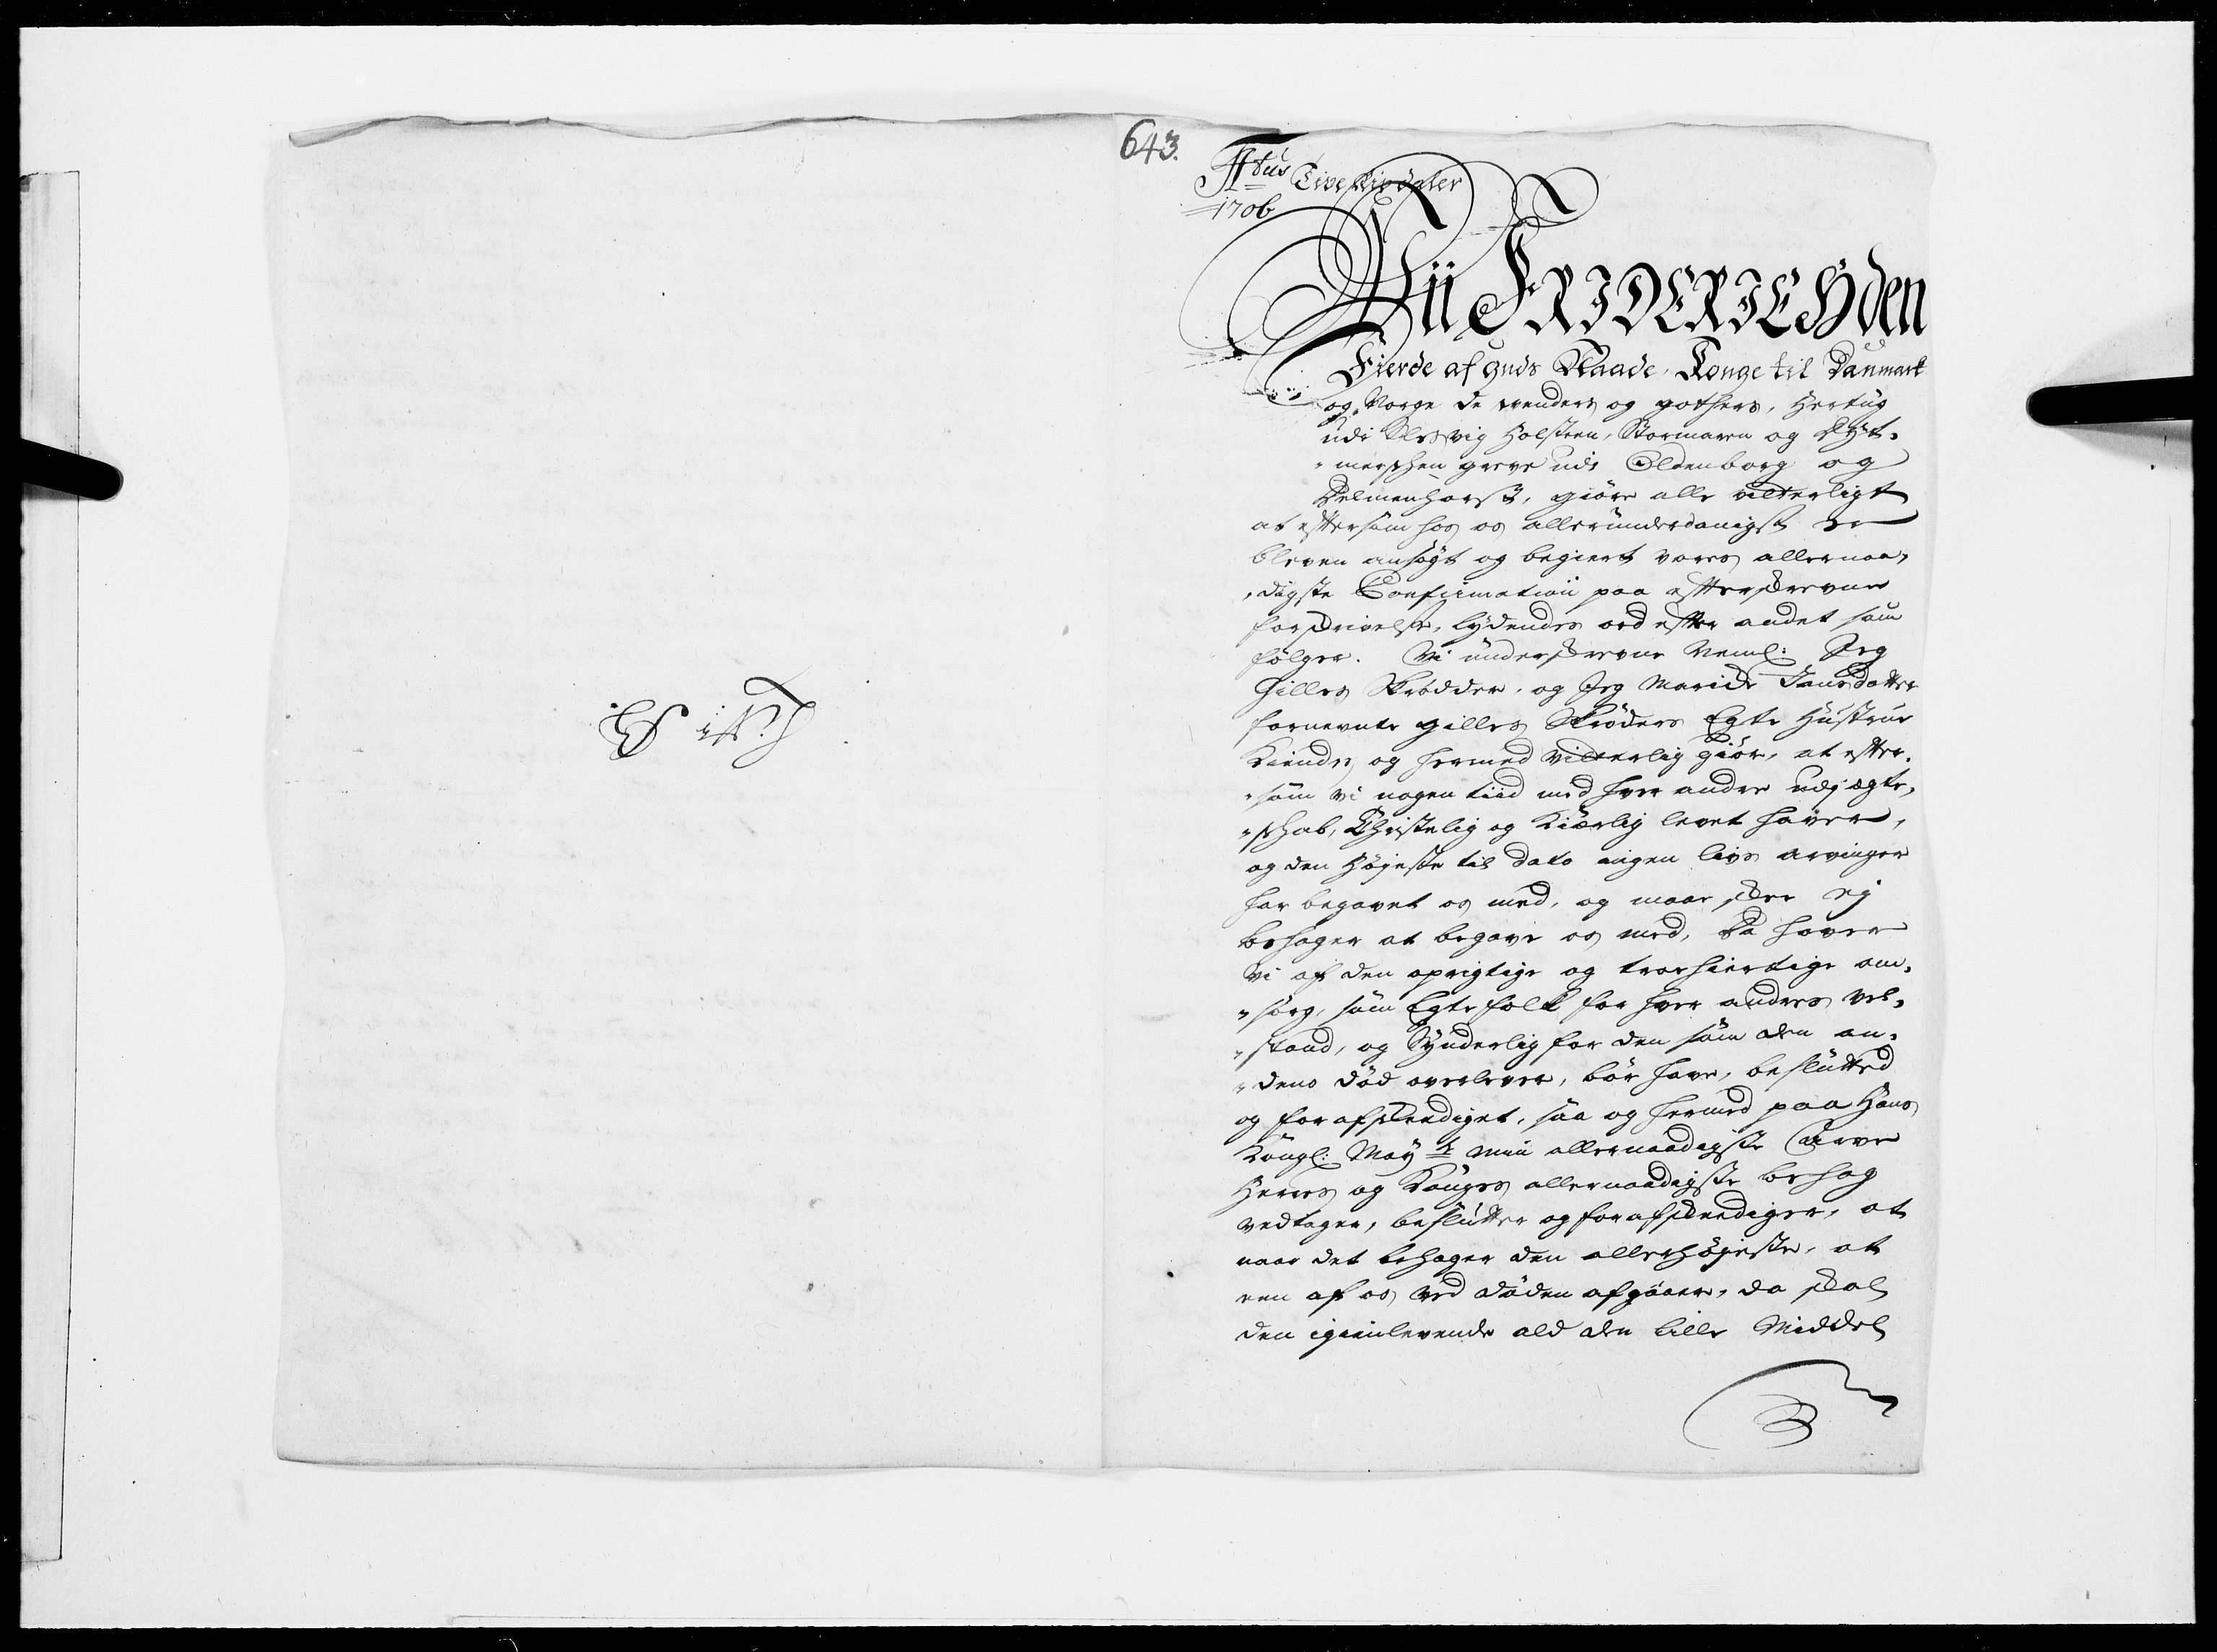 643.
Tive Rixdaler
1706
Wii FRIDERICH den
Fierde af Guds Naade, Konge til Danmark
og Norge de Wenders og Gothers, Hertug
udi Slesvig Holsteen, Stormaren og Dyt-
mersken Greve udi Oldenborg og
Delmenhorst, giøre alle vitterligt
at eftersom hos os allerunderdanigst er
bleven ansøgt og begiert vores allernaa-
digste Confirmation paa efterskrevne
forskrivelse, lydendes ord efter andet som
følger. Vi underskrevne Neml: Jeg
Gilles Skrødder, og Jeg Maride Jansdatter
fornevnte Gilles Skrøders Egte Hustrue
Kiendes og hermed vitterlig giør, at efter-
som vi nogen tiid med hver andre udj ægte-
skab, Christelig og Kierlig levet hafver,
og den Højeste til dato ingen livs arvinger
har begavet os med, og maa skee ej
behager at begave os med, Da hafver
vi af den oprigtige og troehiertige om-
sorg, som Egtefolk for hver anders vel-
stand, og Synderlig for den som den an-
dens død overlever, bør have, beslutted
og forafskeediget, saa og hermed paa Hans
Kongl: May.t min allernaadigste Arve
Herres og Konges allernaadigste behag
vedtager, beslutter og forafskeediger, at
naar det behager den allerhøjeste, at
een af os ved døden afgaaer, da skal
den igienlevende ald den lille Middel